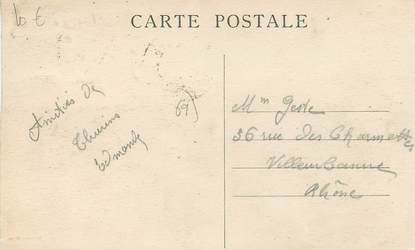 10 €
CARTE POSTALE
Amitiés de
Thurins
Edmonde
69)
Mm
56 rue des Charmettes
Villeurbanne
Rhône